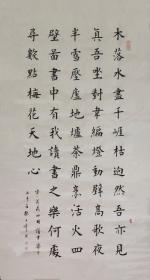 木落水盡千崖枯迥然吾亦見
真吾坐對韋編燈動壁高歌夜
半雪壓廬地爐茶鼎烹活火四
壁圖書中有我讀書之樂何處
尋數點梅花天地心